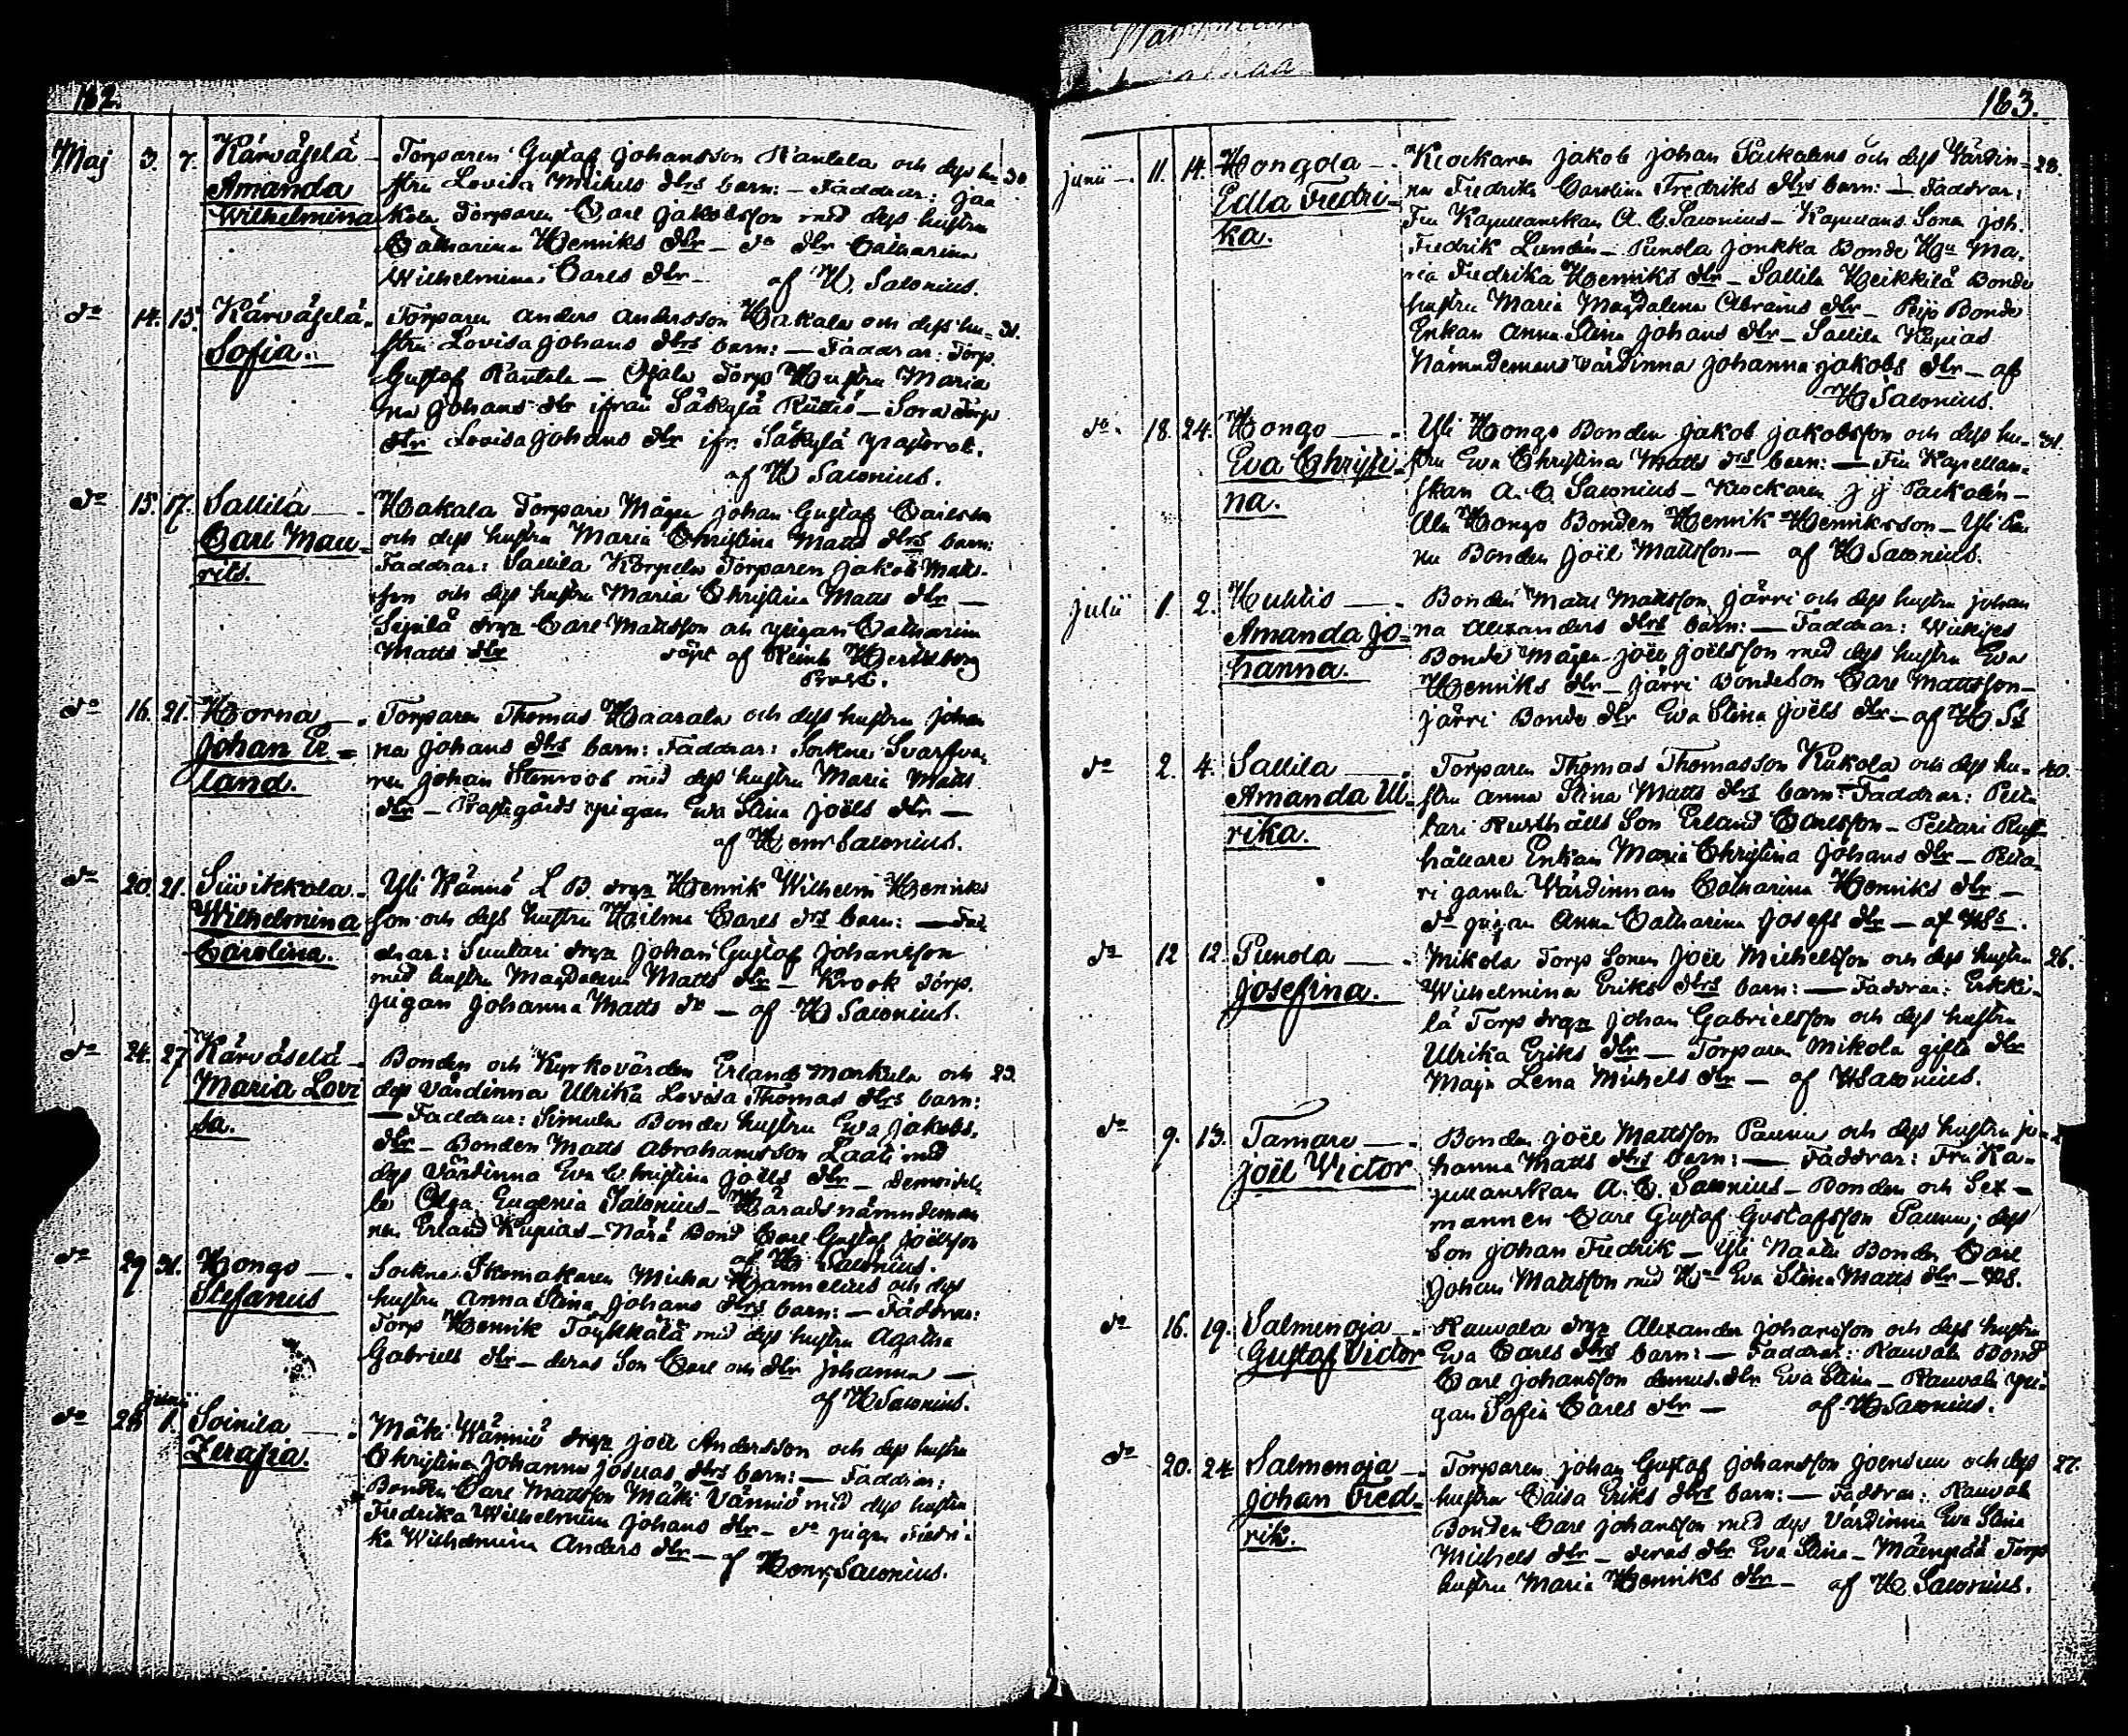 182.
Maj 3. 7. Kärväselä – Torparen Gustaf Johansson Rantala och dess hu- 30
Amanda stru Lovisa Michels dtrs barn: – Faddrar: Jaa
Wilhelmina kola Torparen Carl Jakobsson med dess hustru
Catharina Henriks dtr – do dtr Catharina
Wilhelmina Carls dtr – af H. Salonius.
do 14. 15. Kärväselä. Torparen Anders Andersson Hakala och dess hu- 31.
Sofia. stru Lovisa Johans dtrs barn: – Faddrar: Torp.
Gustaf Rantala – Ojala Torp Hustru Maria
na Johans dtr ifrån Säkylä – Sora Torp
dtr Lovisa Johans dtr ifr. Säkylä pastorat.
af H Salonius.
do 15. 17. Sallila – Hakala Torpare Mågen Johan Gustaf Carlsson
Carl Mau- och dess hustru Maria Christina Matts dtrs barn:
rits. Faddrar: Sallila Korpela Torparen Jakob Matts-
son och dess hustru Maria Christina Matts dtr –
Seppilä drgn Carl Mattsson och pigan Catharina
Matts dtr döpt af Reinh Hertzberg
Prost.
do 16. 21. Horna – Torparen Thomas Haarala och dess hustru Johan
Johan Er- na Johans dtrs barn: Faddrar: Sockne Svarfva-
land. ren Johan Stenroos med dess hustru Maria Matts
dtr – Prästgårds pigan Eva Stina Joëls dtr –
af Henr Salonius.
do 20. 21. Yli Männö L B. drgn Henrik Wilhelm Henriks
Wilhelmina son och dess hustru Hilma Carls dtrs barn: – Fad
Carolina. drar: Suutari drgn Johan Gustaf Johansson
med hustru Magdalena Matts dtr – Krook Torp.
pigan Johanna Matts dr – af H Salonius.
do 24. 27 Kärväselä – Bonden och Kyrkovärden Erland Markula och 23.
Maria Lovi dess värdinna Ulrika Lovisa Thomas dtrs barn:
sa. – Faddrar: Simula Bonde hustru Eva Jakobs.
dtr – Bonden Matts Abrahamsson Laati med
dess värdinna Eva Christina Joëls dtr – Demoisel-
le Olga Eugenia Salonius – Häradsnämndeman
nen Erland Kupias – Närä Bond Carl Gustaf Joëlsson
af H Salonius.
do 29 31. Hongo – Sockne Skomakaren Micha Hannelius och dess
Stefanus hustru Anna Stina Johans dtrs barn: – Faddrar:
Torp Henrik Töykkälä med dess hustru Agatha
Gabriels dtr – deras Son Carl och dtr Johanna –
af H Salonius.
Junii
do 26 1. Soinila – Mäki Wänniö drgn Joël Andersson och dess hustru
Zerafia. Christina Johanna Josuas dtrs barn: – Faddrar:
Bonden Carl Mattsson Mäki Vänniö med dess hustru
Fredrika Wilhelmina Johans dtr – do pigan Fredri-
ka Wilhelmina Anders dtr – af Henr. Salonius.
183.
Junii – 11. 14. Hongola – Klockaren Jakob Johan Packalens och dess Värdin- 28.
Edla Fredri- na Fredrika Carolina Fredriks dtrs barn: – Faddrar:
ka. Fru Kapellanskan A. C. Salonius – Kapellans Sonen Joh.
Fredrik Lundén – Punola Jonkka Bonde Hu Ma-
ria Fredrika Henriks dtr – Sallila Heikkilä Bonde
hustru Maria Magdalena Abrams dtr – Bonde
Enkan Anna Stina Johans dtr – Sallila Kupias
Nämndemans värdinna Johanna Jakobs dtr – af
H Salonius.
do. 18. 24. Hongo – Yli Hongo Bonden Jakob Jakobsson och dess hu- 31.
Eva Christi- stru Eva Christina Matts dtrs barn: – Fru Kapellan-
na. skan A. C. Salonius – Klockaren J J Packalén –
Ala Hongo Bonden Henrik Henriksson – Yli Pau
nu Bonden Joël Mattsson – af H Salonius.
Julii 1. 2. Huhtis – Bonden Matts Mattsson Järri och dess hustru Johan
Amanda Jo- na Alexanders dtrs barn: – Faddrar:
hanna. Bonde Mågen Joël Joëlsson med dess hustru Eva
Henriks dtr – Järri Bondeson Carl Mattsson –
Järri Bonde dtr Eva Stina Joëls dtr – af H. Ss
do 2. 4. Sallila – Torparen Thomas Thomasson Kukola och dess hu- 40.
Amanda Ul- stru Anna Stina Matts dtrs barn: Faddrar: Pelta
rika. tari Rusthålls Son Erland Carlsson – Peltari Rust-
hållare Enkan Maria Christina Johans dtr – Pelta-
ri gamla Värdinnan Catharina Henriks dtr –
do pigan Anna Catharina Josefs dtr – af HSs.
do 12 12. Punola – Mikola Torp Sonen Joël Michelsson och dess hustru 26.
Josefina. Wilhelmina Eriks dtrs barn: – Faddrar: Erkki-
lä Torp drgn Johan Gabrielsson och dess hustru
Ulrika Eriks dtr – Torparen Mikola gifta dtr
Maja Lena Michels dtr – af H Salonius.
do 9. 13. Tamare – Bonden Joël Mattsson Paunu och dess hustru Jo-
Joël Victor hanna Matts dtrs barn: – Faddrar: Fru Ka-
pellanskan A. C. Salonius – Bonden och Sex-
mannen Carl Gustaf Gustafsson Paunu; dess
Son Johan Fredrik – Yli Naatu Bonden Carl
Johan Mattsson med Hu Eva Stina Matts dtr – HS.
do 16. 19. Salmenoja – Rauvola drgn Alexander Johansson och dess hustru
Gustaf Victor Eva Carls dtrs barn: – Faddrar: Rauvola Bond
Carl Johansson dennes dtr Eva Stina – Rauvola pi-
gan Sofia Carls dtr – af H Salonius.
do 20. 24 Salmenoja – Torparen Johan Gustaf Johansson Joensuu och dess 27.
Johan Fred- hustru Caisa Eriks dtrs barn: – Faddrar: Rauvola
rik. Bonden Carl Johansson med dess Värdinna Eva Stina
Michels dtr – deras dtr Eva Stina – Mäenpää Torp
hustru Maria Henriks dtr – af H. Salonius.